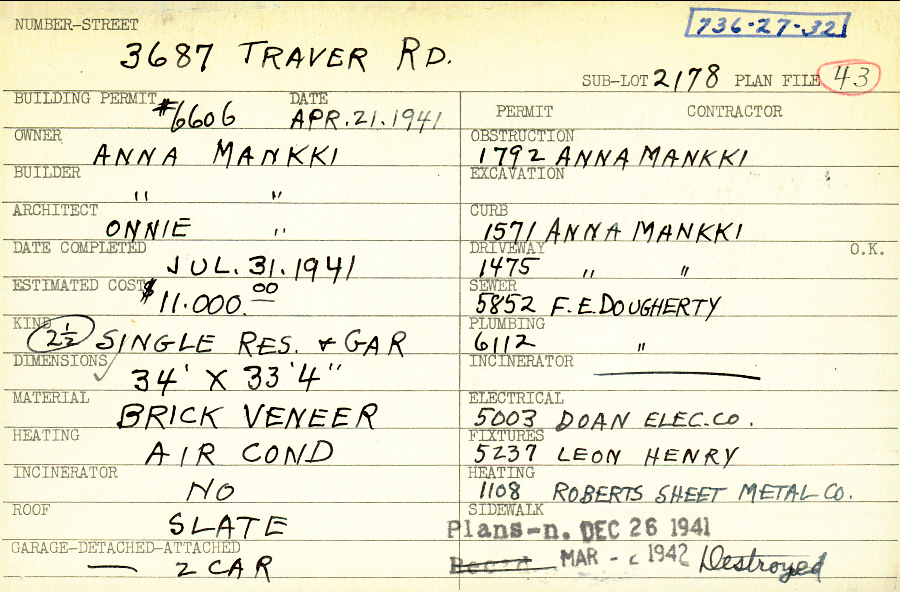 NUMBER-STREET
736-27-32
3687 TRAVER RD.
SUB-LOT 2178 PLAN FILE 43
BUILDING PERMIT #6606 DATE APR. 21. 1941
PERMIT CONTRACTOR
OWNER ANNA MANKKI
OBSTRUCTION 1792 ANNA MANKKI
BUILDER " "
EXCAVATION
ARCHITECT ONNIE "
CURB 1571 ANNA MANKKI
DATE COMPLETED JUL. 31. 1941
DRIVEWAY 1475 " " O.K.
ESTIMATED COST $11.000.00
SEWER 5852 F.E. DOUGHERTY
KIND 2½ SINGLE RES. & GAR
PLUMBING 6112 "
DIMENSIONS 34' X 33'4"
INCINERATOR
MATERIAL BRICK VENEER
ELECTRICAL 5003 DOAN ELEC. CO.
HEATING AIR COND
FIXTURES 5237 LEON HENRY
INCINERATOR NO
HEATING 1108 ROBERTS SHEET METAL CO.
ROOF SLATE
SIDEWALK
Plans-n. DEC 26 1941
GARAGE-DETACHED-ATTACHED — 2 CAR
MAR - 1942 Destroyed